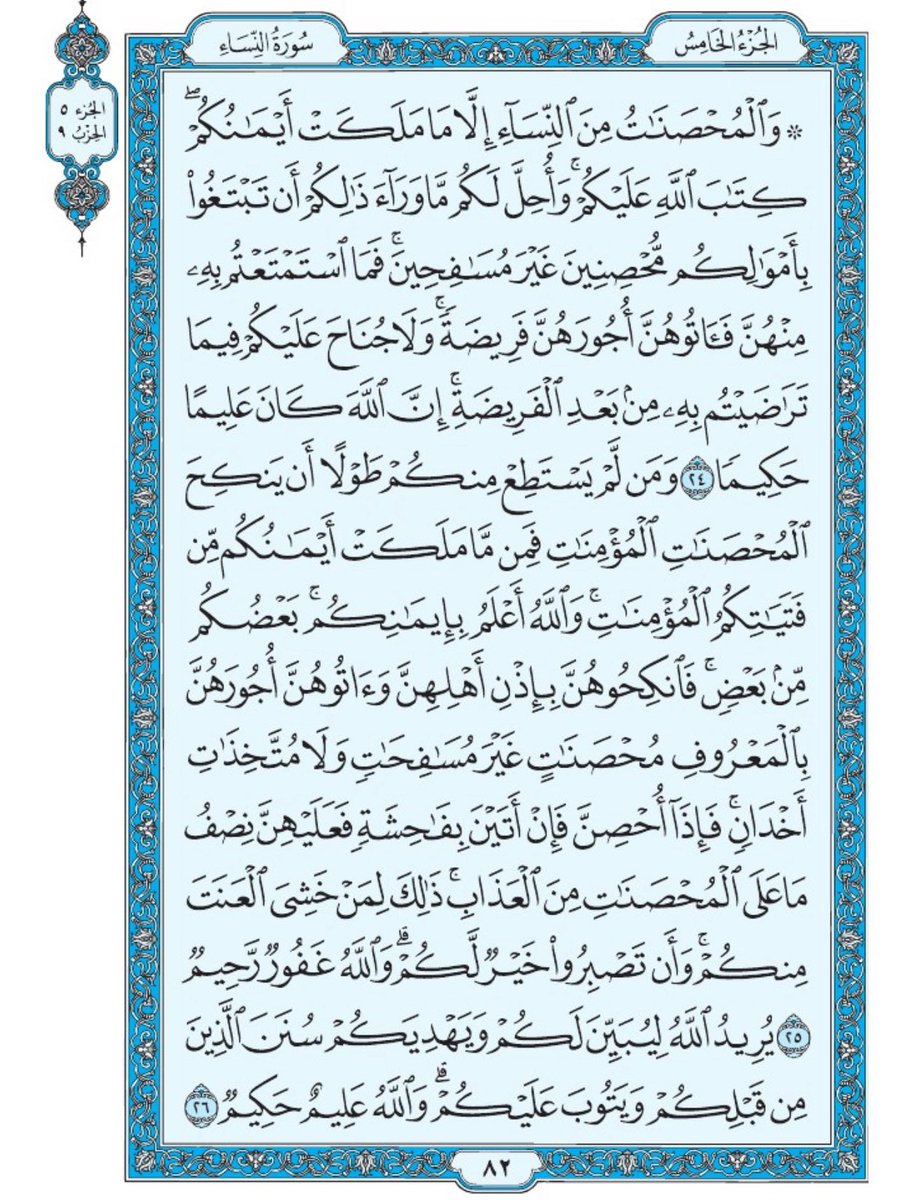 الجُزْءُ الخَامِسُ
سُورَةُ النِّسَاءِ
الجُزء ٥
الحِزْبُ ٩
۞ وَٱلْمُحْصَنَٰتُ مِنَ ٱلنِّسَآءِ إِلَّا مَا مَلَكَتْ أَيْمَٰنُكُمْۖ
كِتَٰبَ ٱللَّهِ عَلَيْكُمْۚ وَأُحِلَّ لَكُم مَّا وَرَآءَ ذَٰلِكُمْ أَن تَبْتَغُوا۟
بِأَمْوَٰلِكُم مُّحْصِنِينَ غَيْرَ مُسَٰفِحِينَۚ فَمَا ٱسْتَمْتَعْتُم بِهِۦ
مِنْهُنَّ فَـَٔاتُوهُنَّ أُجُورَهُنَّ فَرِيضَةًۚ وَلَا جُنَاحَ عَلَيْكُمْ فِيمَا
تَرَٰضَيْتُم بِهِۦ مِنۢ بَعْدِ ٱلْفَرِيضَةِۚ إِنَّ ٱللَّهَ كَانَ عَلِيمًا
حَكِيمًا ٢٤ وَمَن لَّمْ يَسْتَطِعْ مِنكُمْ طَوْلًا أَن يَنكِحَ
ٱلْمُحْصَنَٰتِ ٱلْمُؤْمِنَٰتِ فَمِن مَّا مَلَكَتْ أَيْمَٰنُكُم مِّن
فَتَيَٰتِكُمُ ٱلْمُؤْمِنَٰتِۚ وَٱللَّهُ أَعْلَمُ بِإِيمَٰنِكُمۚ بَعْضُكُم
مِّنۢ بَعْضٍۚ فَٱنكِحُوهُنَّ بِإِذْنِ أَهْلِهِنَّ وَءَاتُوهُنَّ أُجُورَهُنَّ
بِٱلْمَعْرُوفِ مُحْصَنَٰتٍ غَيْرَ مُسَٰفِحَٰتٍ وَلَا مُتَّخِذَٰتِ
أَخْدَانٍۚ فَإِذَآ أُحْصِنَّ فَإِنْ أَتَيْنَ بِفَٰحِشَةٍ فَعَلَيْهِنَّ نِصْفُ
مَا عَلَى ٱلْمُحْصَنَٰتِ مِنَ ٱلْعَذَابِۚ ذَٰلِكَ لِمَنْ خَشِىَ ٱلْعَنَتَ
مِنكُمْۚ وَأَن تَصْبِرُوا۟ خَيْرٌ لَّكُمْۗ وَٱللَّهُ غَفُورٌ رَّحِيمٌ
٢٥ يُرِيدُ ٱللَّهُ لِيُبَيِّنَ لَكُمْ وَيَهْدِيَكُمْ سُنَنَ ٱلَّذِينَ
مِن قَبْلِكُمْ وَيَتُوبَ عَلَيْكُمْۗ وَٱللَّهُ عَلِيمٌ حَكِيمٌ ٢٦
٨٢